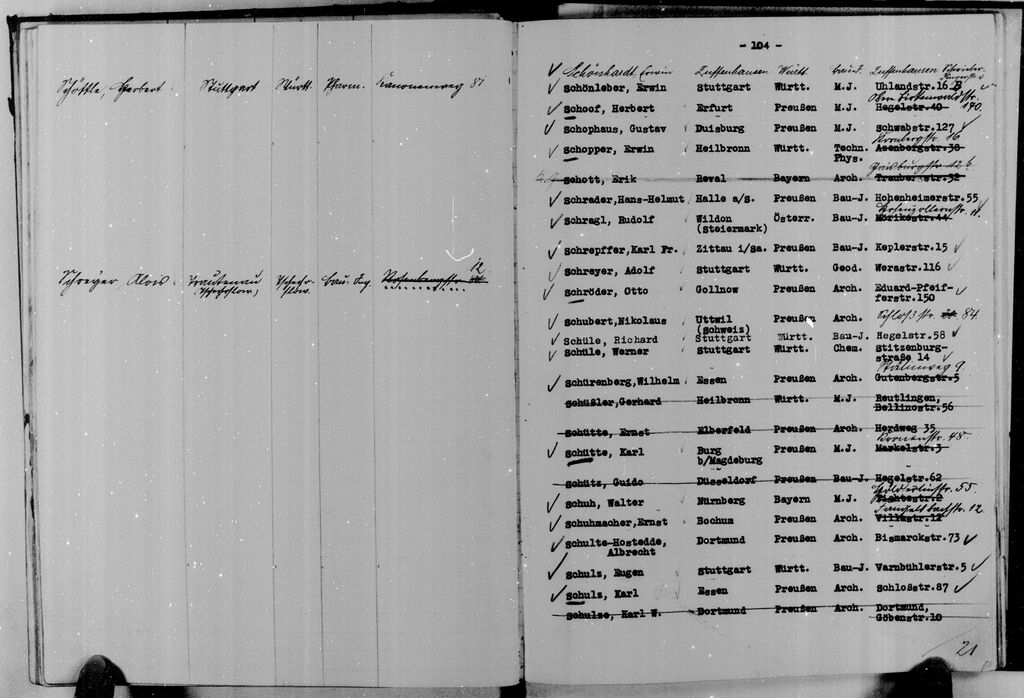 Schöttle, Herbert Stuttgart Württ. Pharm. Kanonenweg 81
12
Schreyer Alois Trautenau Tschecho- Bau-Ing.
(Tschechoslow.) slow.
- 104 -
Schönhardt Erwin Zuffenhausen Württ. Zuffenhausen
Schönleber, Erwin Stuttgart Württ. M.J. Uhlandstr.16 B
Obere Birkenwaldstr.
Schoof, Herbert Erfurt Preußen M.J. Hegelstr.40 170
Schophaus, Gustav Duisburg Preußen M.J. Schwabstr.127
Kornbergstr. 16
Schopper, Erwin Heilbronn Württ. Techn. Asenbergstr.38
Phys.
Schott, Erik Reval Bayern Arch. Traubenstr.32
Schrader, Hans-Helmut Halle a/S. Preußen Bau-J. Hohenheimerstr.55
Hohenzollernstr.
Schragl, Rudolf Wildon Österr. Bau-J. Mörikestr.44
(Steiermark)
Schrepffer, Karl Fr. Zittau i/Sa. Preußen Bau-J. Keplerstr.15
Schreyer, Adolf Stuttgart Württ. Geod. Werastr.116
Schröder, Otto Gollnow Preußen Arch. Eduard-Pfeif-
ferstr.150
Schubert, Nikolaus Uttwil Preußen Arch. Schloßstr. 84
(Schweiz)
Schüle, Richard Stuttgart Württ. Bau-J. Hegelstr.58
Schüle, Werner Stuttgart Württ. Chem. Stitzenburg-
straße 14
9.
Schürenberg, Wilhelm Essen Preußen Arch. Gutenbergstr.5
Schüßler, Gerhard Heilbronn Württ. M.J. Reutlingen,
Bellinostr.56
Schütte, Ernst Elberfeld Preußen Arch. Herdweg 35
Kronenstr. 48.
Schütte, Karl Burg Preußen M.J. Markelstr.3
b/Magdeburg
Schütz, Guido Düsseldorf Preußen Bau-J. Hegelstr.62
Hölderlinstr. 55.
Schuh, Walter Nürnberg Bayern M.J. Fichtestr.2
Schuhmacher, Ernst Bochum Preußen Arch. Villastr.11
Schulte-Hostedde, Dortmund Preußen Arch. Bismarckstr.73
Albrecht
Schulz, Eugen Stuttgart Württ. Bau-J. Varnbühlerstr.5
Schulz, Karl Essen Preußen Arch. Schloßstr.87
Schulze, Karl W. Dortmund Preußen Arch. Dortmund,
Göbenstr.10
21